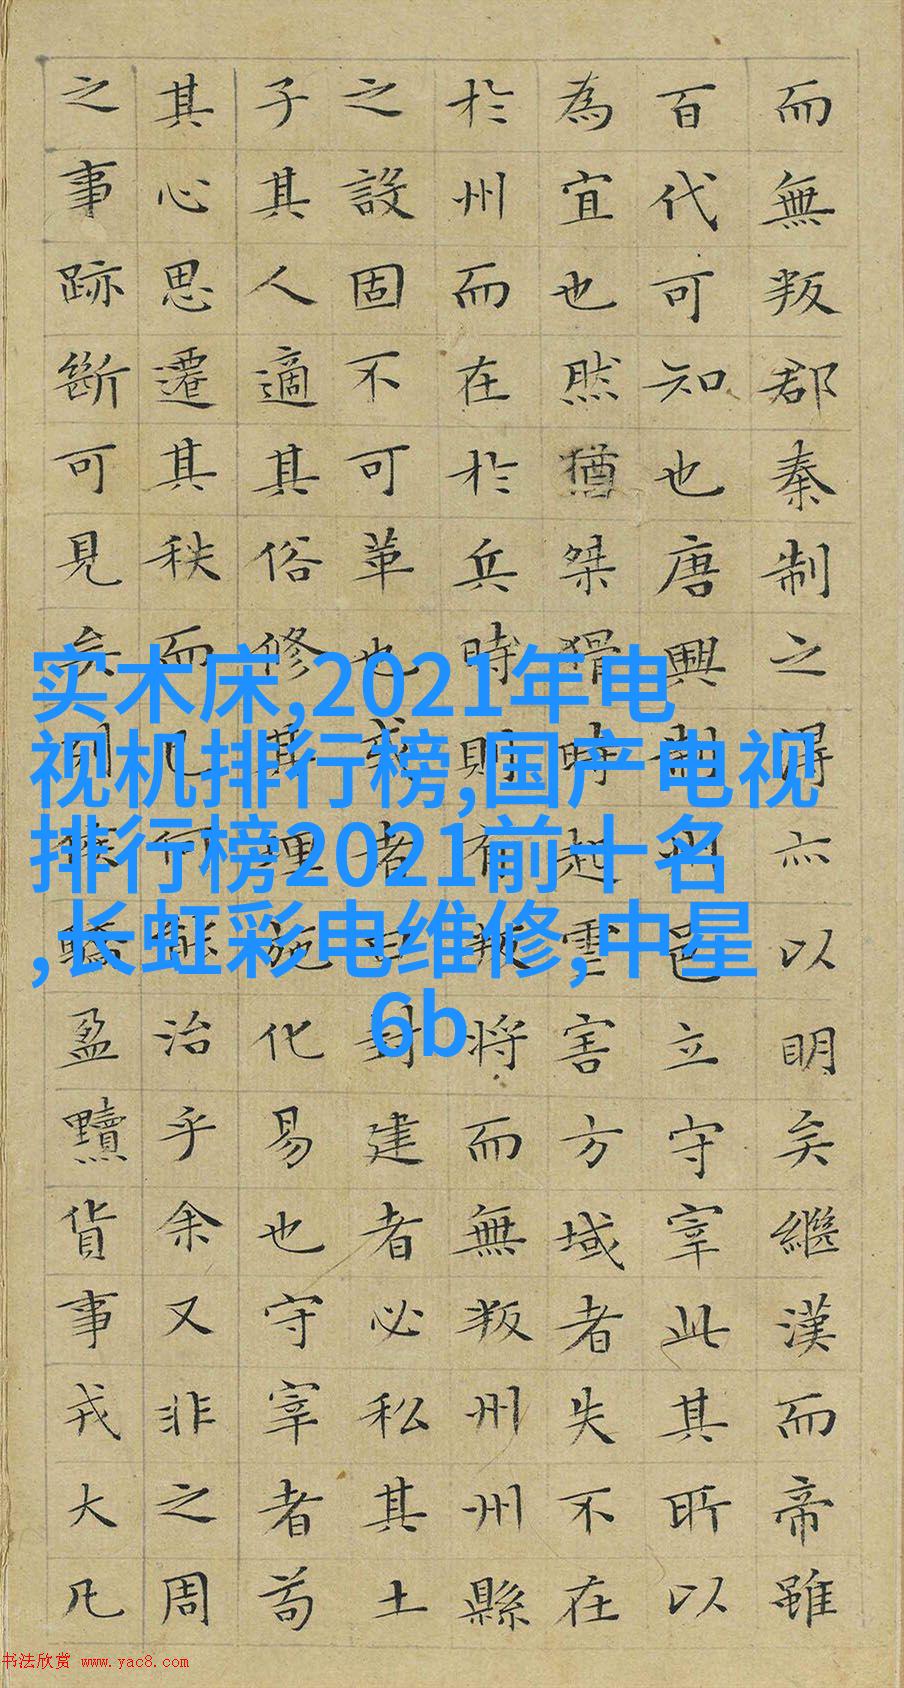 而無叛郡秦制之得亦以明矣繼漢而帝雖
百代可知也唐興制州邑立守宰此其所以
為宜也然猶桀猾時起虐害方域者失不在
於州而在於兵時則有叛將而無叛州州縣
之設固不可革也或者曰封建者必私其土
子其人適其俗修其理施化易也守宰者苟
其心思遷其秩而已何能治乎余又非之周
之事跡斷可見矣列侯驕盈黷貨事戎大凡
实木床,2021年电
视机排行榜,国产电视
排行榜2021前十名
,长虹彩电维修,中星
6b
书法欣赏 www.yac8.com